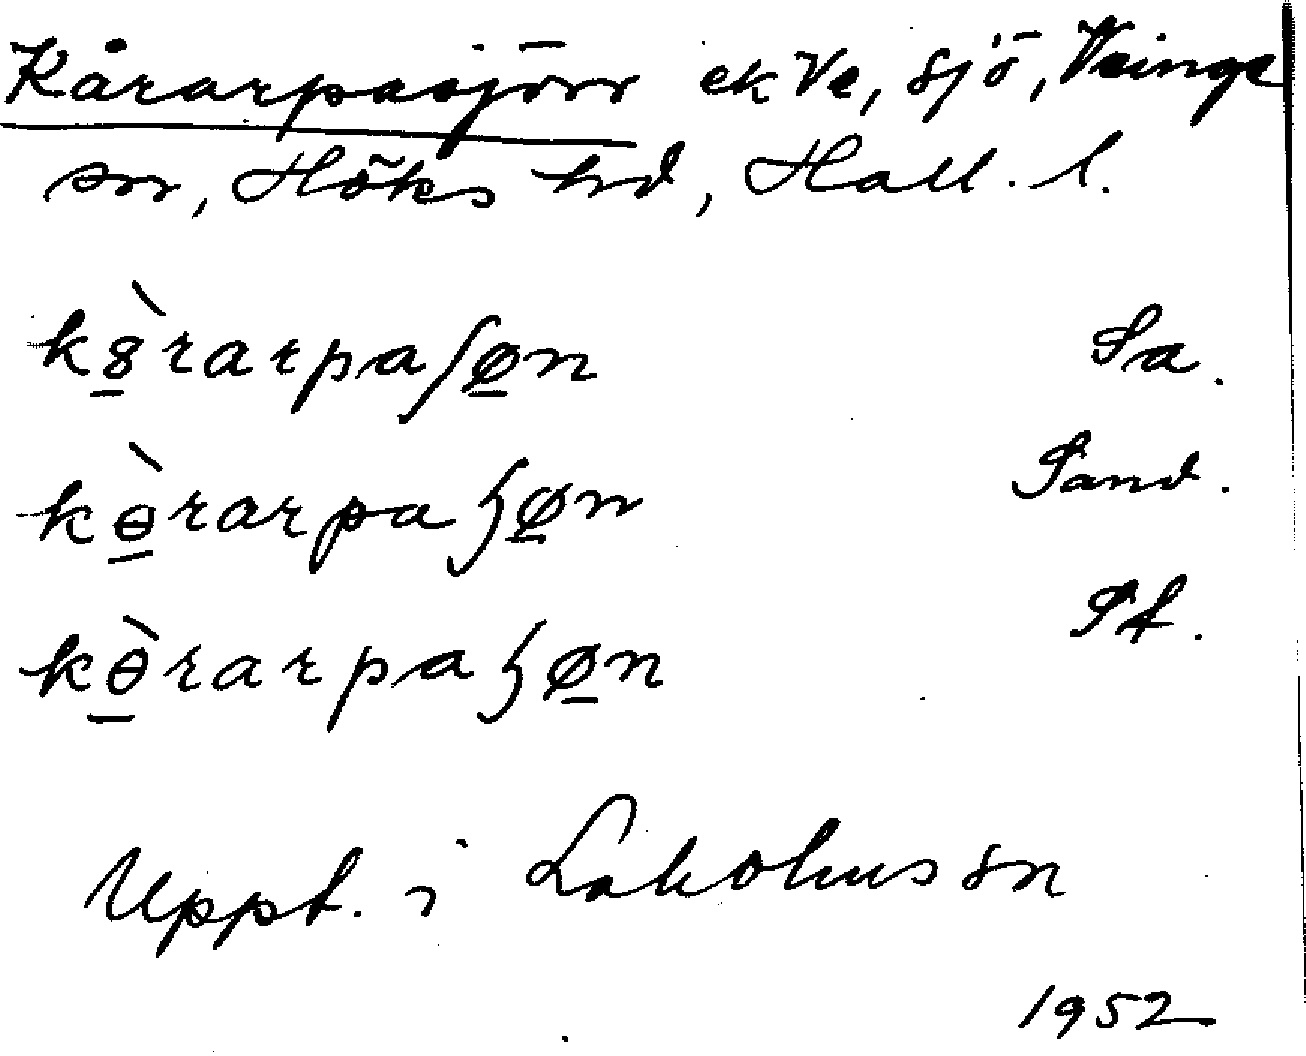 Kårarpasjön ek Ve, sjö, Veinge
sn, Höks hd, Hall. l.
kȣ̱̀rarpaʃø̱n Sa.
kɵ̱̀rarpa� ɧø̱n Sand.
kɵ̱̀rarpaɧø̱n Pf.
Uppt. i Laholms sn
1952